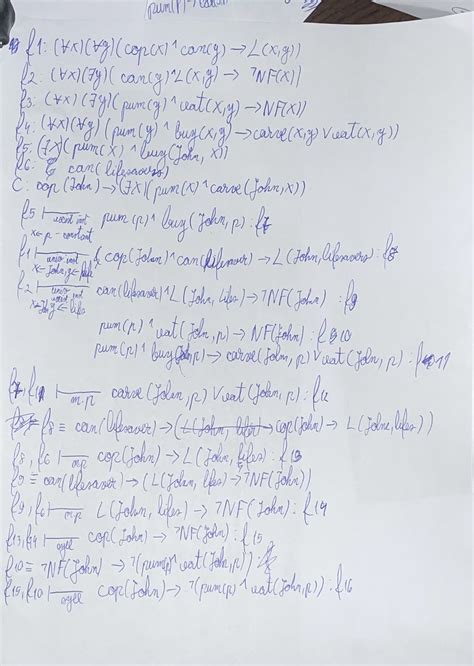 pum(p)
f1: (∀x)(∀y)(cop(x) ^ can(y) → L(x,y))
f2: (∀x)(∃y)(can(y) ^ L(x,y) → ¬NF(x))
f3: (∀x)(∃y)(pum(y) ^ eat(x,y) → NF(x))
f4: (∀x)(∀y)(pum(y) ^ buy(x,y) → carve(x,y) ∨ eat(x,y))
f5: (∃x)(pum(x) ^ buy(John, x))
f6: can(lifesavers)
C: cop(John) → (∃x)(pum(x) ^ carve(John,x))
f5 pum(p) ^ buy(John, p): f7
x←p - constant
f1 cop(John) ^ can(lifesaver) → L(John, lifesavers): f8
x←John, y←life
f2 can(lifesaver) ^ L(John, lifes) → ¬NF(John) : f9
pum(p) ^ eat(John, p) → NF(John) : f10
pum(p) ^ buy(John,p) → carve(John, p) ∨ eat(John, p) : f11
f7, f11 m.p carve(John,p) ∨ eat(John, p) : f12
f8 ≡ can(lifesaver) → (cop(John) → L(John, lifes))
f8, f6 mp cop(John) → L(John, lifes) : f13
f9 ≡ can(lifesaver) → (L(John, lifes) → ¬NF(John))
f9, f6 mp L(John, lifes) → ¬NF(John) : f14
f13, f14 cop(John) → ¬NF(John) : f15
f10 ≡ ¬NF(John) → ¬(pum(p) ^ eat(John, p))
f15, f10 cop(John) → ¬(pum(p) ^ eat(John, p)) : f16